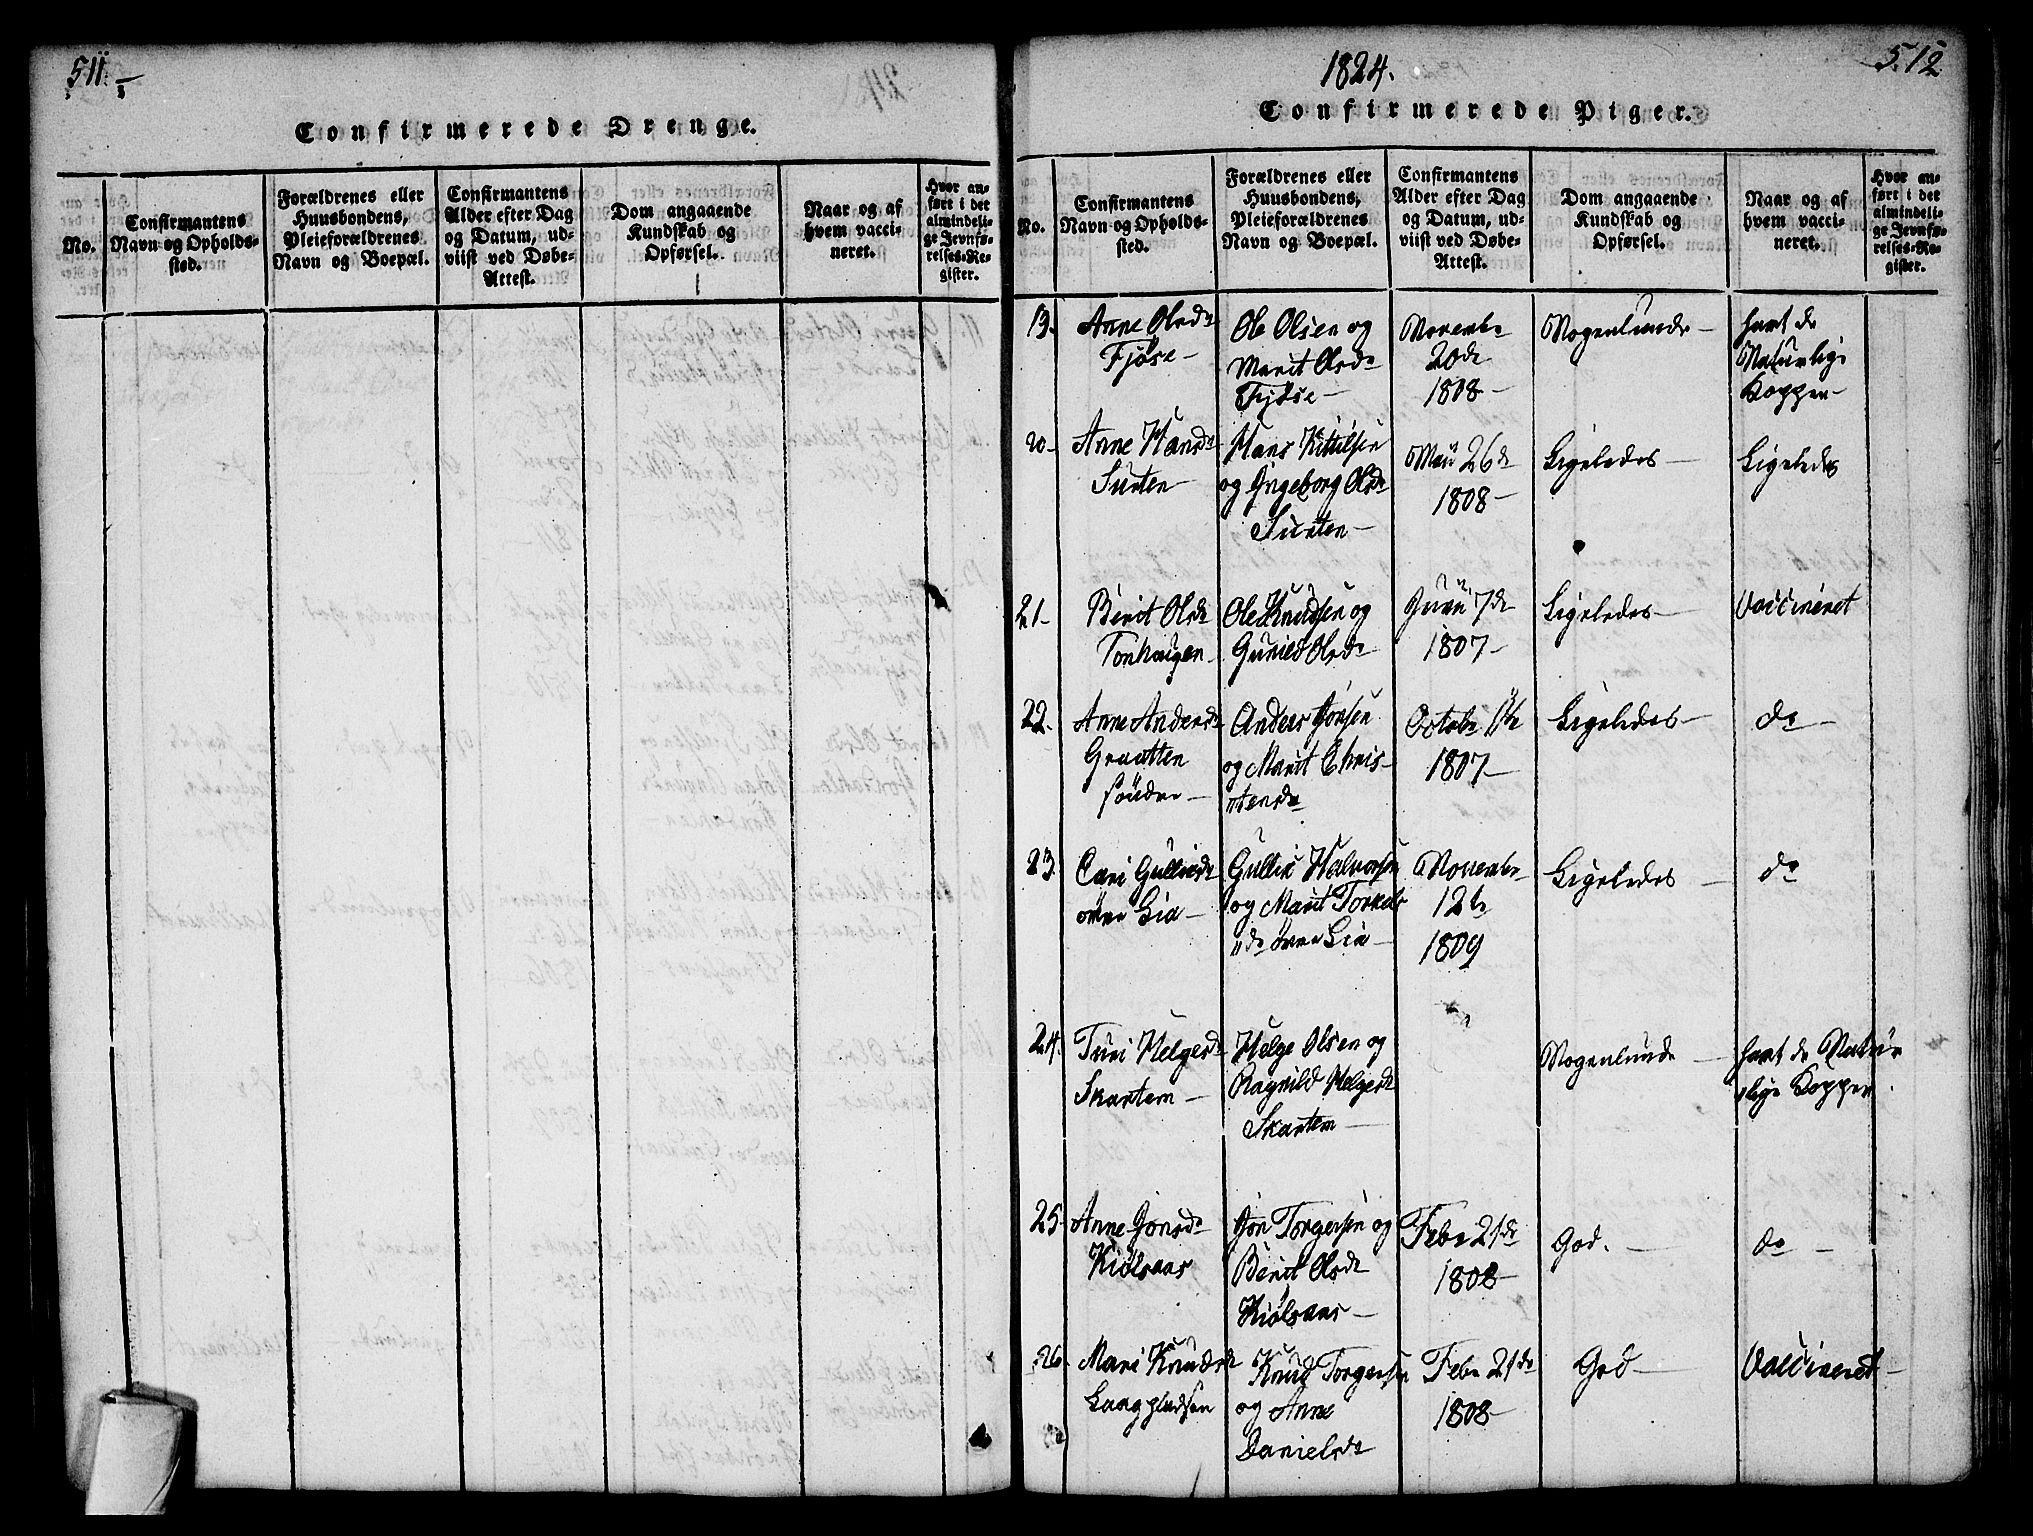 511.
Confirmerede Drenge.
No.
Confirmantens
Navn og Opholds-
sted.
Forældrenes eller
Huusbondens,
Pleieforældrenes
Navn og Boepæl.
Confirmantens
Alder efter Dag
og Datum, ud-
viist ved Døbe-
Attest.
Dom angaaende
Kundskab og
Opførsel.
Naar og af
hvem vacci-
neret.
Hvor an-
ført i det
almindeli-
ge Jevnfø-
relses-Re-
gister.
1824.
512
Confirmerede Piger.
No.
Confirmantens
Navn og Opholds-
sted.
Forældrenes eller
Huusbondens,
Pleieforældrenes
Navn og Boepæl.
Confirmantens
Alder efter Dag
og Datum, ud-
viist ved Døbe-
Attest.
Dom angaaende
Kundskab og
Opførsel.
Naar og af
hvem vacci-
neret.
Hvor an-
ført i det
almindeli-
ge Jevnfø-
relses-Re-
gister.
19.
Anne Olsd:
Fjøse
Ole Olsen og
Marit Olsd:
Fjøse
Novembr
20de
1808
Nogenlunde
havt de
Naturlige
Kopper
20
Anne Hansd:
Surten
Hans Kittilsen
og Ingeborg Olsd:
Surten
Maii 26de
1808
Ligeledes
Ligeledes
21
Berit Olsd:
Tonhaugen
Ole Knudsen og
Guried Olsd:
Junii 7de
1807
Ligeledes
Vaccineret
22.
Anne Andersd:
Graatten
søndre
Anders Jonsen
og Marit Chris-
tensd:
Octobr 11te
1807
Ligeledes
do
23
Cari Gulliksd:
øvre Lia
Gullik Halvorsen
og Marit Torkels
d: øvre Lia
Novembr
12te
1809
Ligeledes
do
24.
Turi Helgesd:
Skartem
Helge Olsen og
Ragnild Helgesd:
Skartem
Nogenlunde
havt de Natur
lige Kopper.
25
Anne Jonsd:
Kiølsaas
Jon Torgersen og
Berit Olsd:
Kiølsaas
Febr 21de
1808
God.
do
26
Mari Knudsd:
Laagpladsen
Knud Torgersen
og Anne
Danielsd:
Febr 21de
1808
God
Vaccineret